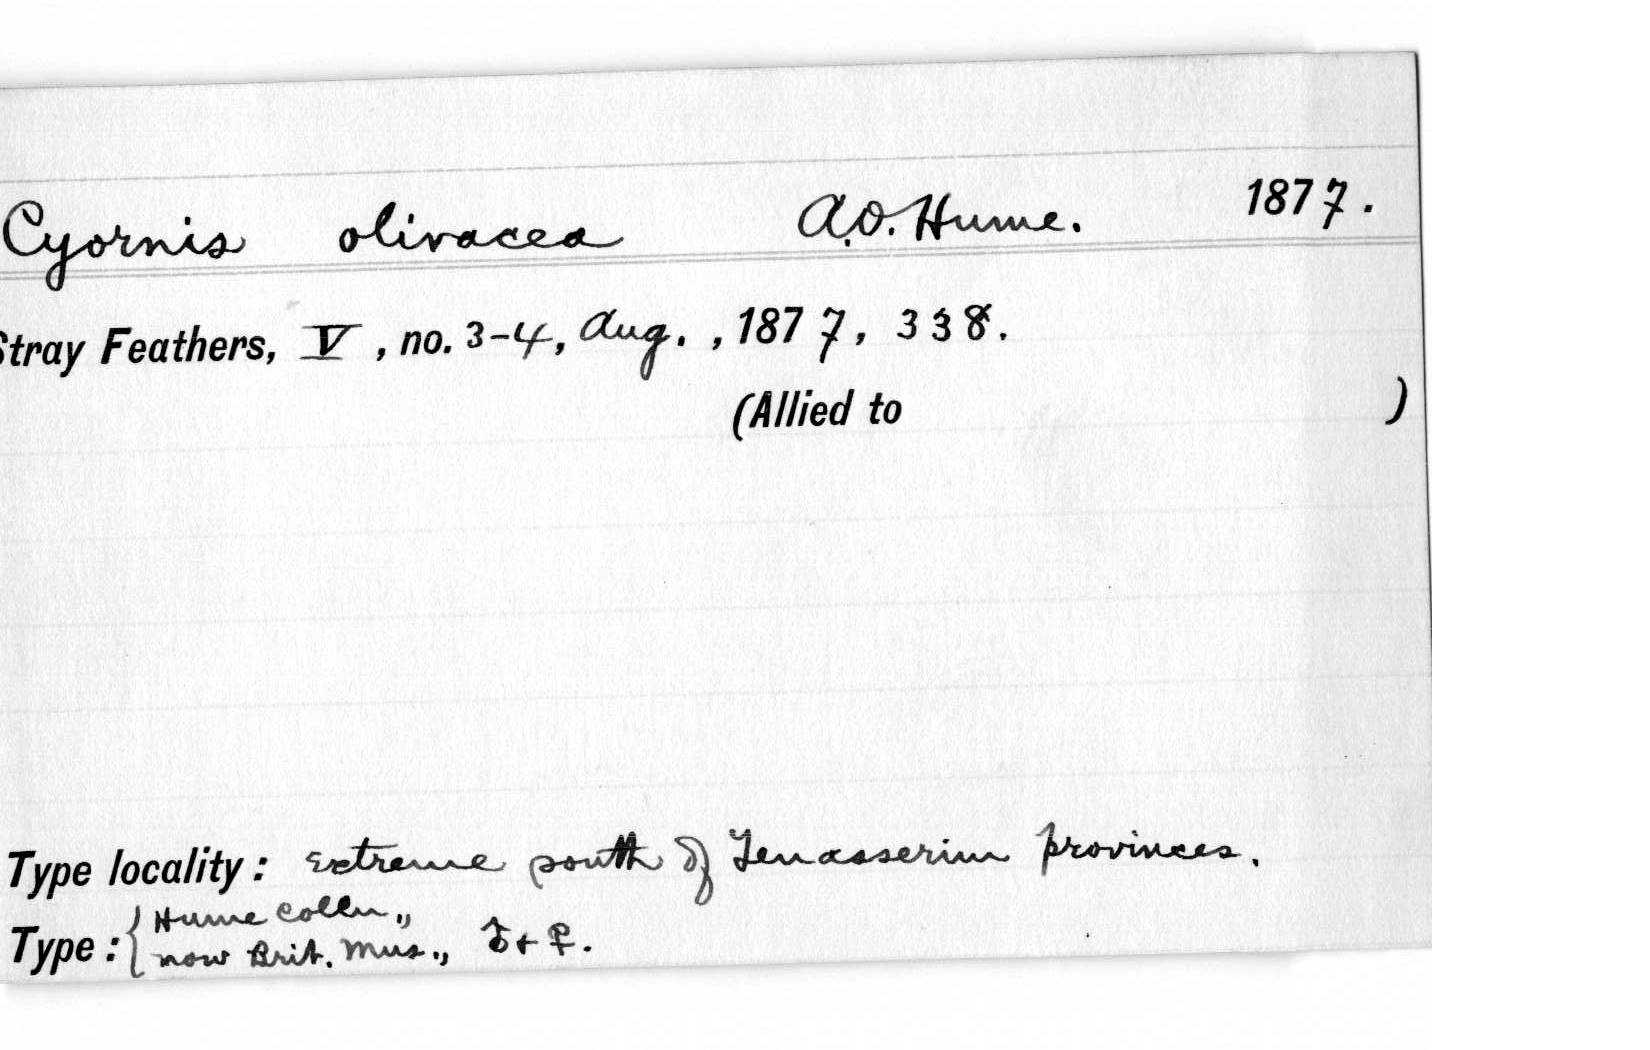 Cyornis olivacea A.O. Hume. 1877.
Stray Feathers, V, no. 3-4, Aug., 1877, 338.
(Allied to )
Type locality: Extreme south of Tenasserim provinces.
Type: { Hume Colln.,
now Brit. Mus., ♂ + ♀.